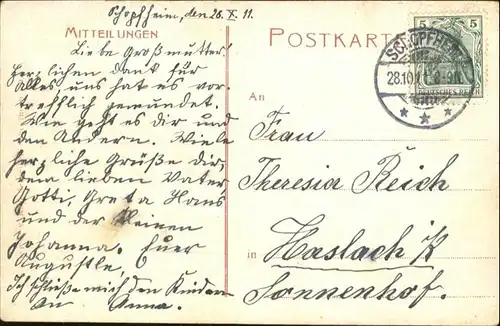 Schopfheim, den 26. X. 11.
MITTEILUNGEN
Liebe Großmutter!
Herzlichen Dank für
Alles, uns hat es vor-
trefflich gemundet.
Wie geht es dir und
den Andern. Viele
herzliche Grüße dir,
dem lieben Vater
Gotti, Greta Hans
und der kleinen
Johanna. Euer
Augustle,
Ich schließe mich den Kindern
an Anna.
POSTKARTE
5 5
SCHOPFHEIM
28.10.11. 8-9N.
DEUTSCHES REICH
An
Frau
Theresia Reich
in Haslach i/K
Sonnenhof.